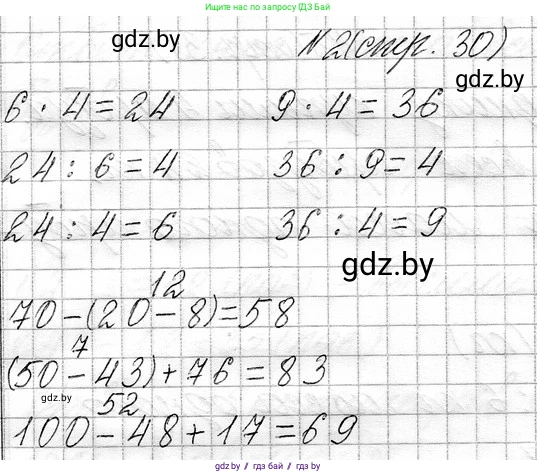 Ищите нас по запросу ГДЗ Бай
gdz.by
№2(стр. 30)
gdz.by
6 · 4 = 24
9 · 4 = 36
24 : 6 = 4
36 : 9 = 4
24 : 4 = 6
36 : 4 = 9
gdz.by
12
70 - (20 - 8) = 58
7
(50 - 43) + 76 = 83
gdz.by
52
100 - 48 + 17 = 69
gdz.by / гдз бай / gdz.by